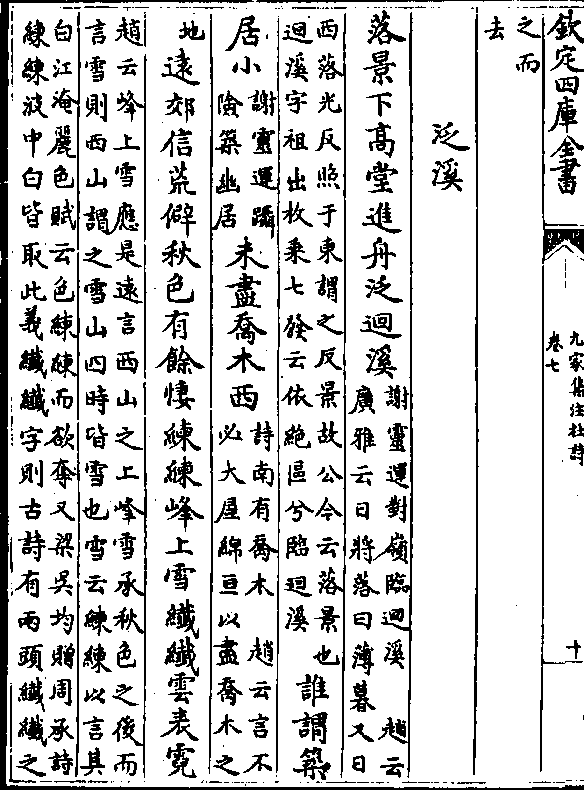 欽定四庫全書
九家集注杜詩
卷七
十
之而
去
泛溪
落景下高堂進舟泛迴溪
謝靈運對嶺臨迴溪 趙云
廣雅云日將落曰薄暮又日
西落光反照于東謂之反景故公今云落景也
迴溪字祖出枚乗七發云依絶區兮臨迴溪
誰謂築
居小
謝靈運躡
險築幽居
未盡喬木西
詩南有喬木 趙云言不
必大屋綿亘以盡喬木之
地
遠郊信荒僻秋色有餘悽練練峰上雪纖纖雲表霓
趙云峰上雪應是遠言西山之上峰雪承秋色之後而
言雪則西山謂之雪山四時皆雪也雪云練練以言其
白江淹麗色賦云色練練而欲奪又梁吳均贈周承詩
練練波中白皆取此義纖纖字則古詩有兩頭纖纖之